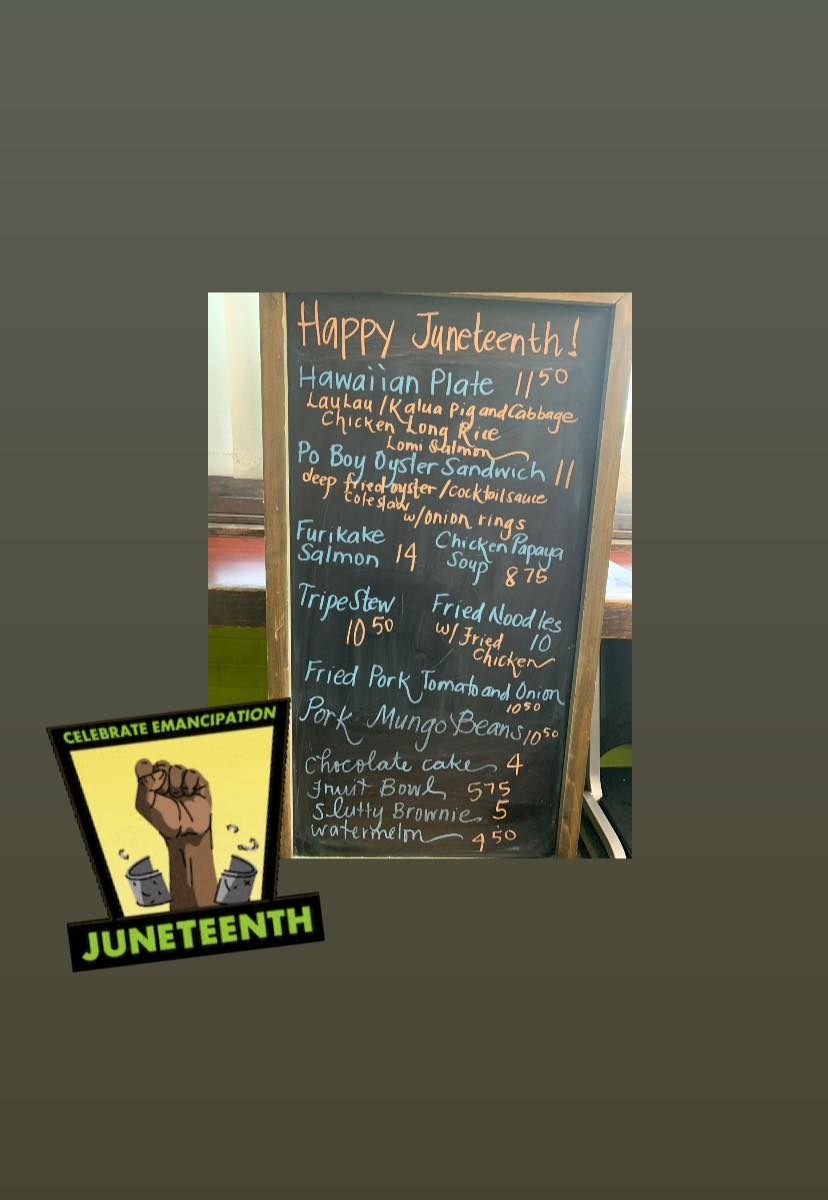 Happy Juneteenth!
Hawaiian Plate 11 50
LauLau / Kalua Pig and Cabbage
Chicken Long Rice
Lomi Salmon
Po Boy Oyster Sandwich 11
deep fried oyster / cocktail sauce
coleslaw
w/ onion rings
Furikake
Salmon 14
Chicken Papaya
Soup 8 75
Tripe Stew
10 50
Fried Noodles
w/ Fried 10
Chicken
Fried Pork Tomato and Onion
10 50
Pork Mungo Beans 10 50
Chocolate cake 4
Fruit Bowl 5 75
Slutty Brownie 5
watermelon 4 50
CELEBRATE EMANCIPATION
JUNETEENTH